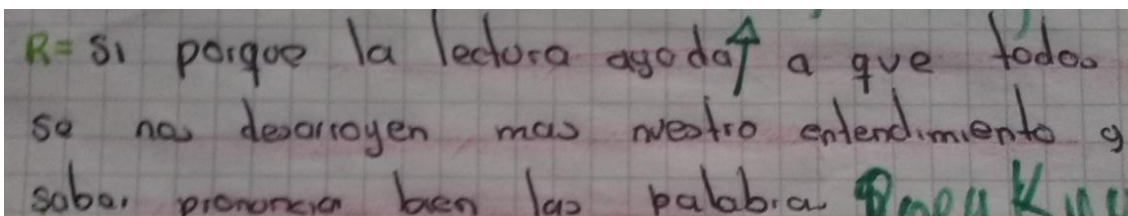 R= si porque la lectura agoda a que todos
se nos desarroyen mas nuestro entendimiento y
saber pronuncian bien las palabras